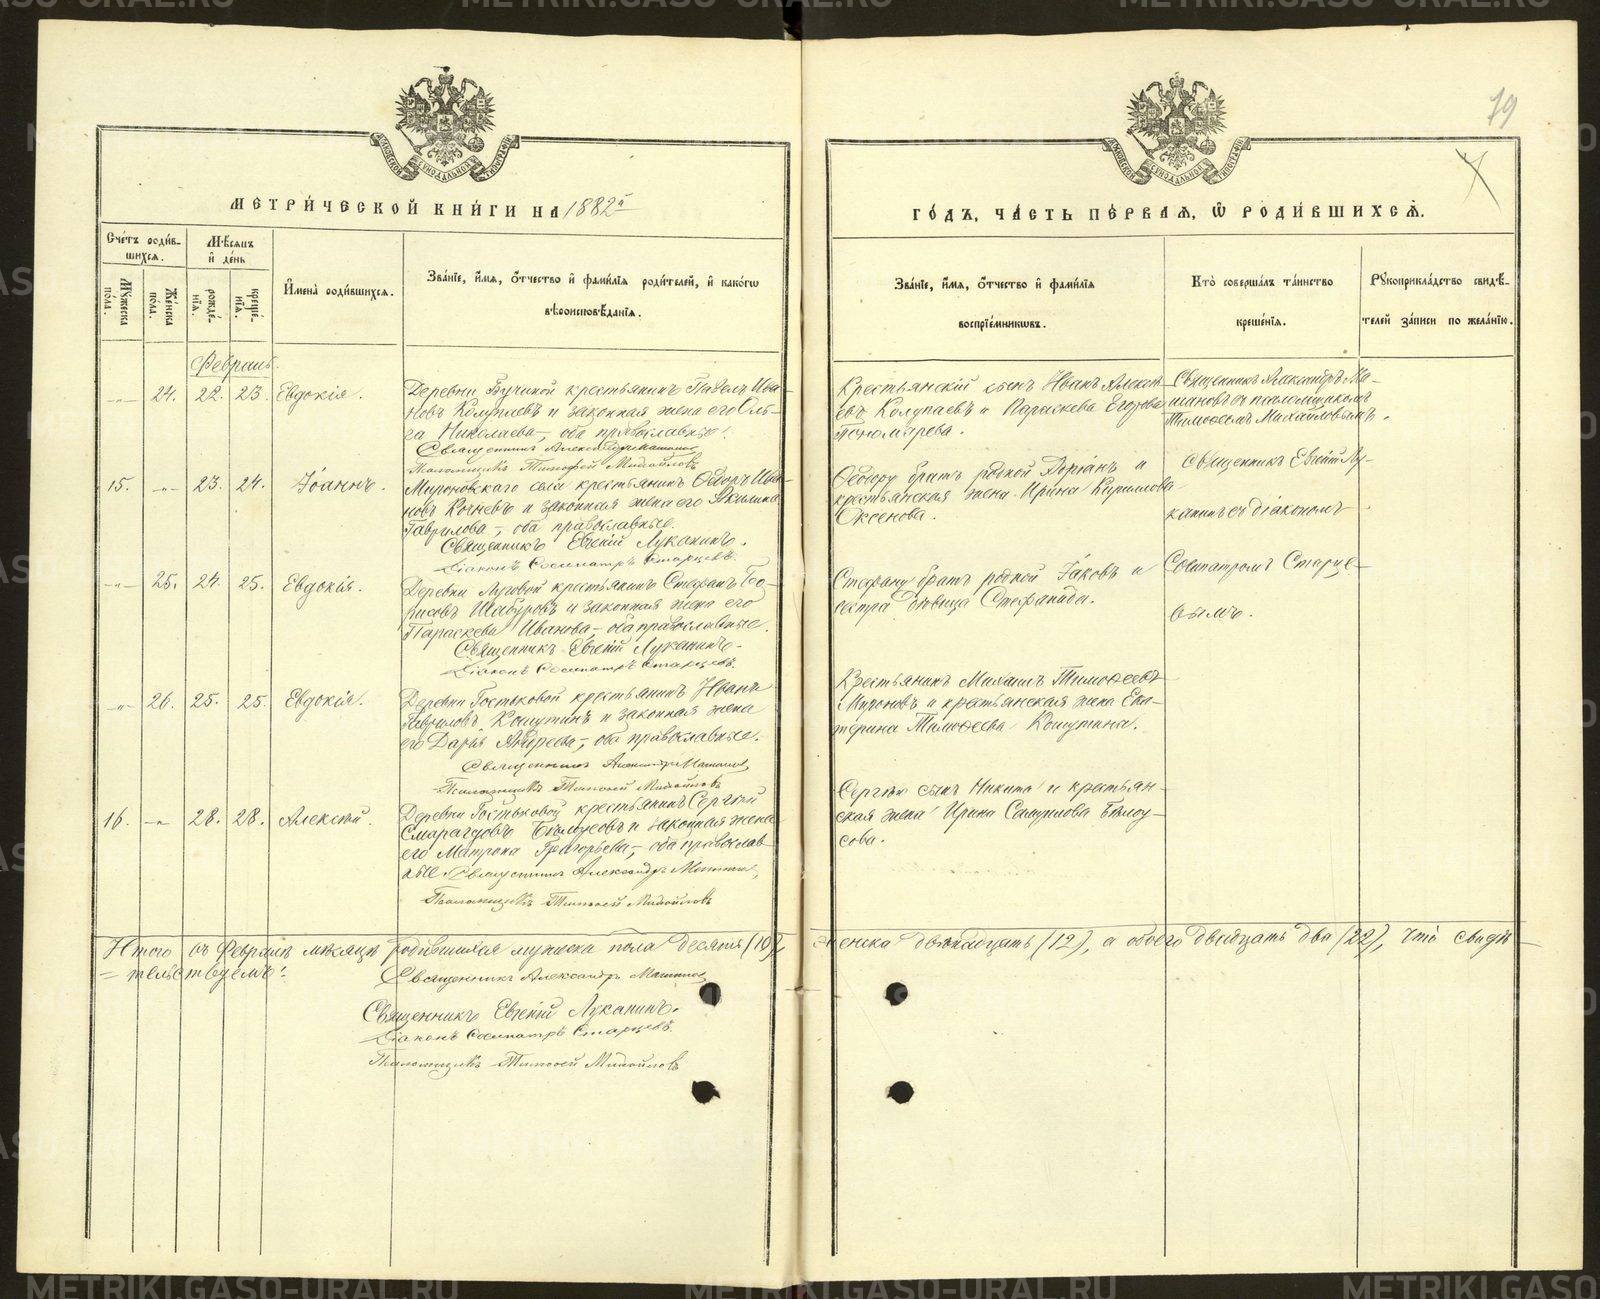 МЕТРИ́ЧЕСКОЙ КНИ́ГИ НА 1882й
ГО́ДЪ, ЧА́СТЬ ПЕ́РВАѦ, Ѡ РОДИ́ВШИХСѦ.
79
Сче́тъ роди́в-
шихсѧ.
Мѣ́сѧцъ
и҆ де́нь
Мꙋ́жеска
по́ла.
Же́нска
по́ла.
рожде́-
нїѧ.
креще́-
нїѧ.
И҆мена̀ роди́вшихсѧ.
Зва́нїе, и҆́мѧ, ѻ҆́тчество и҆ фами́лїѧ роди́телей, и҆ како́гѡ
вѣроисповѣ́данїѧ.
Зва́нїе, и҆́мѧ, ѻ҆́тчество и҆ фами́лїѧ
воспрїе́мникѡвъ.
Кто̀ соверша́лъ та́инство
креще́нїѧ.
Рꙋкоприкла́дство свидѣ́-
телей за́писи по жела́нїю.
Февраль.
-"- 24. 22. 23. Евдокія.
Деревни крестьянинъ Павелъ Ива-
новъ Колупаевъ и законная жена его Оль-
га Николаева, оба православные.
Священникъ Александръ
Псаломщикъ Тимофей Михайловъ
Крестьянскій сынъ Иванъ Алексѣ-
евъ Колупаевъ и Параскева Егорова
Пономарева.
Священникъ Александръ Ма-
съ псаломщикомъ
Тимофеемъ Михайловымъ.
15. -"- 23. 24. Іоаннъ.
Мироновскаго села крестьянинъ Ѳедоръ Ива-
новъ Кочневъ и законная жена его Акилина
Гаврилова, оба православные.
Священникъ Евгеній Луканинъ.
Діаконъ Сосипатръ Старцевъ.
Ѳедору братъ родной Адріанъ и
крестьянская жена Ирина Кирилова
Оксенова.
Священникъ Евгеній Лу-
канинъ съ діакономъ
-"- 25. 24. 25. Евдокія.
Деревни Луговой крестьянинъ Стефанъ
Шабуровъ и законная жена его
Параскева Иванова, оба православные.
Священникъ Евгеній Луканинъ.
Діаконъ Сосипатръ Старцевъ.
Стефану братъ родной Іаковъ и
сестра дѣвица Стефанида.
Сосипатромъ Старце-
вымъ.
-"- 26. 25. 25. Евдокія.
Деревни Гостьковой крестьянинъ Иванъ
Гавриловъ Кошутинъ и законная жена
его Дарія Андреева, оба православные.
Священникъ Александръ
Псаломщикъ Тимофей Михайловъ
Крестьянинъ Михаилъ Тимофеевъ
Мироновъ и крестьянская жена Ека-
терина Тимофеева Кошутина.
16. -"- 28. 28. Алексѣй.
Деревни Гостьковой крестьянинъ Сергѣй
Смарагдовъ Бѣлоусовъ и законная жена
его Матрона Григорьева, оба православ-
ные. Священникъ Александръ
Псаломщикъ Тимофей Михайловъ
Сергѣю сынъ Никита и крестьян-
ская жена Ирина Самуилова Бѣлоу-
сова.
Итого въ Февралѣ мѣсяцѣ родившихся мужеска пола десять (10), женска двѣнадцать (12), а обоего двадцать два (22), что свидѣ-
тельствуемъ:
Священникъ Александръ
Священникъ Евгеній Луканинъ.
Діаконъ Сосипатръ Старцевъ.
Псаломщикъ Тимофей Михайловъ
METRIKI.GASO-URAL.RU